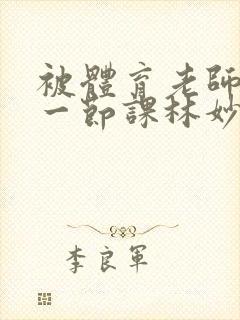 被體育老師
一節課林妙
李良軍